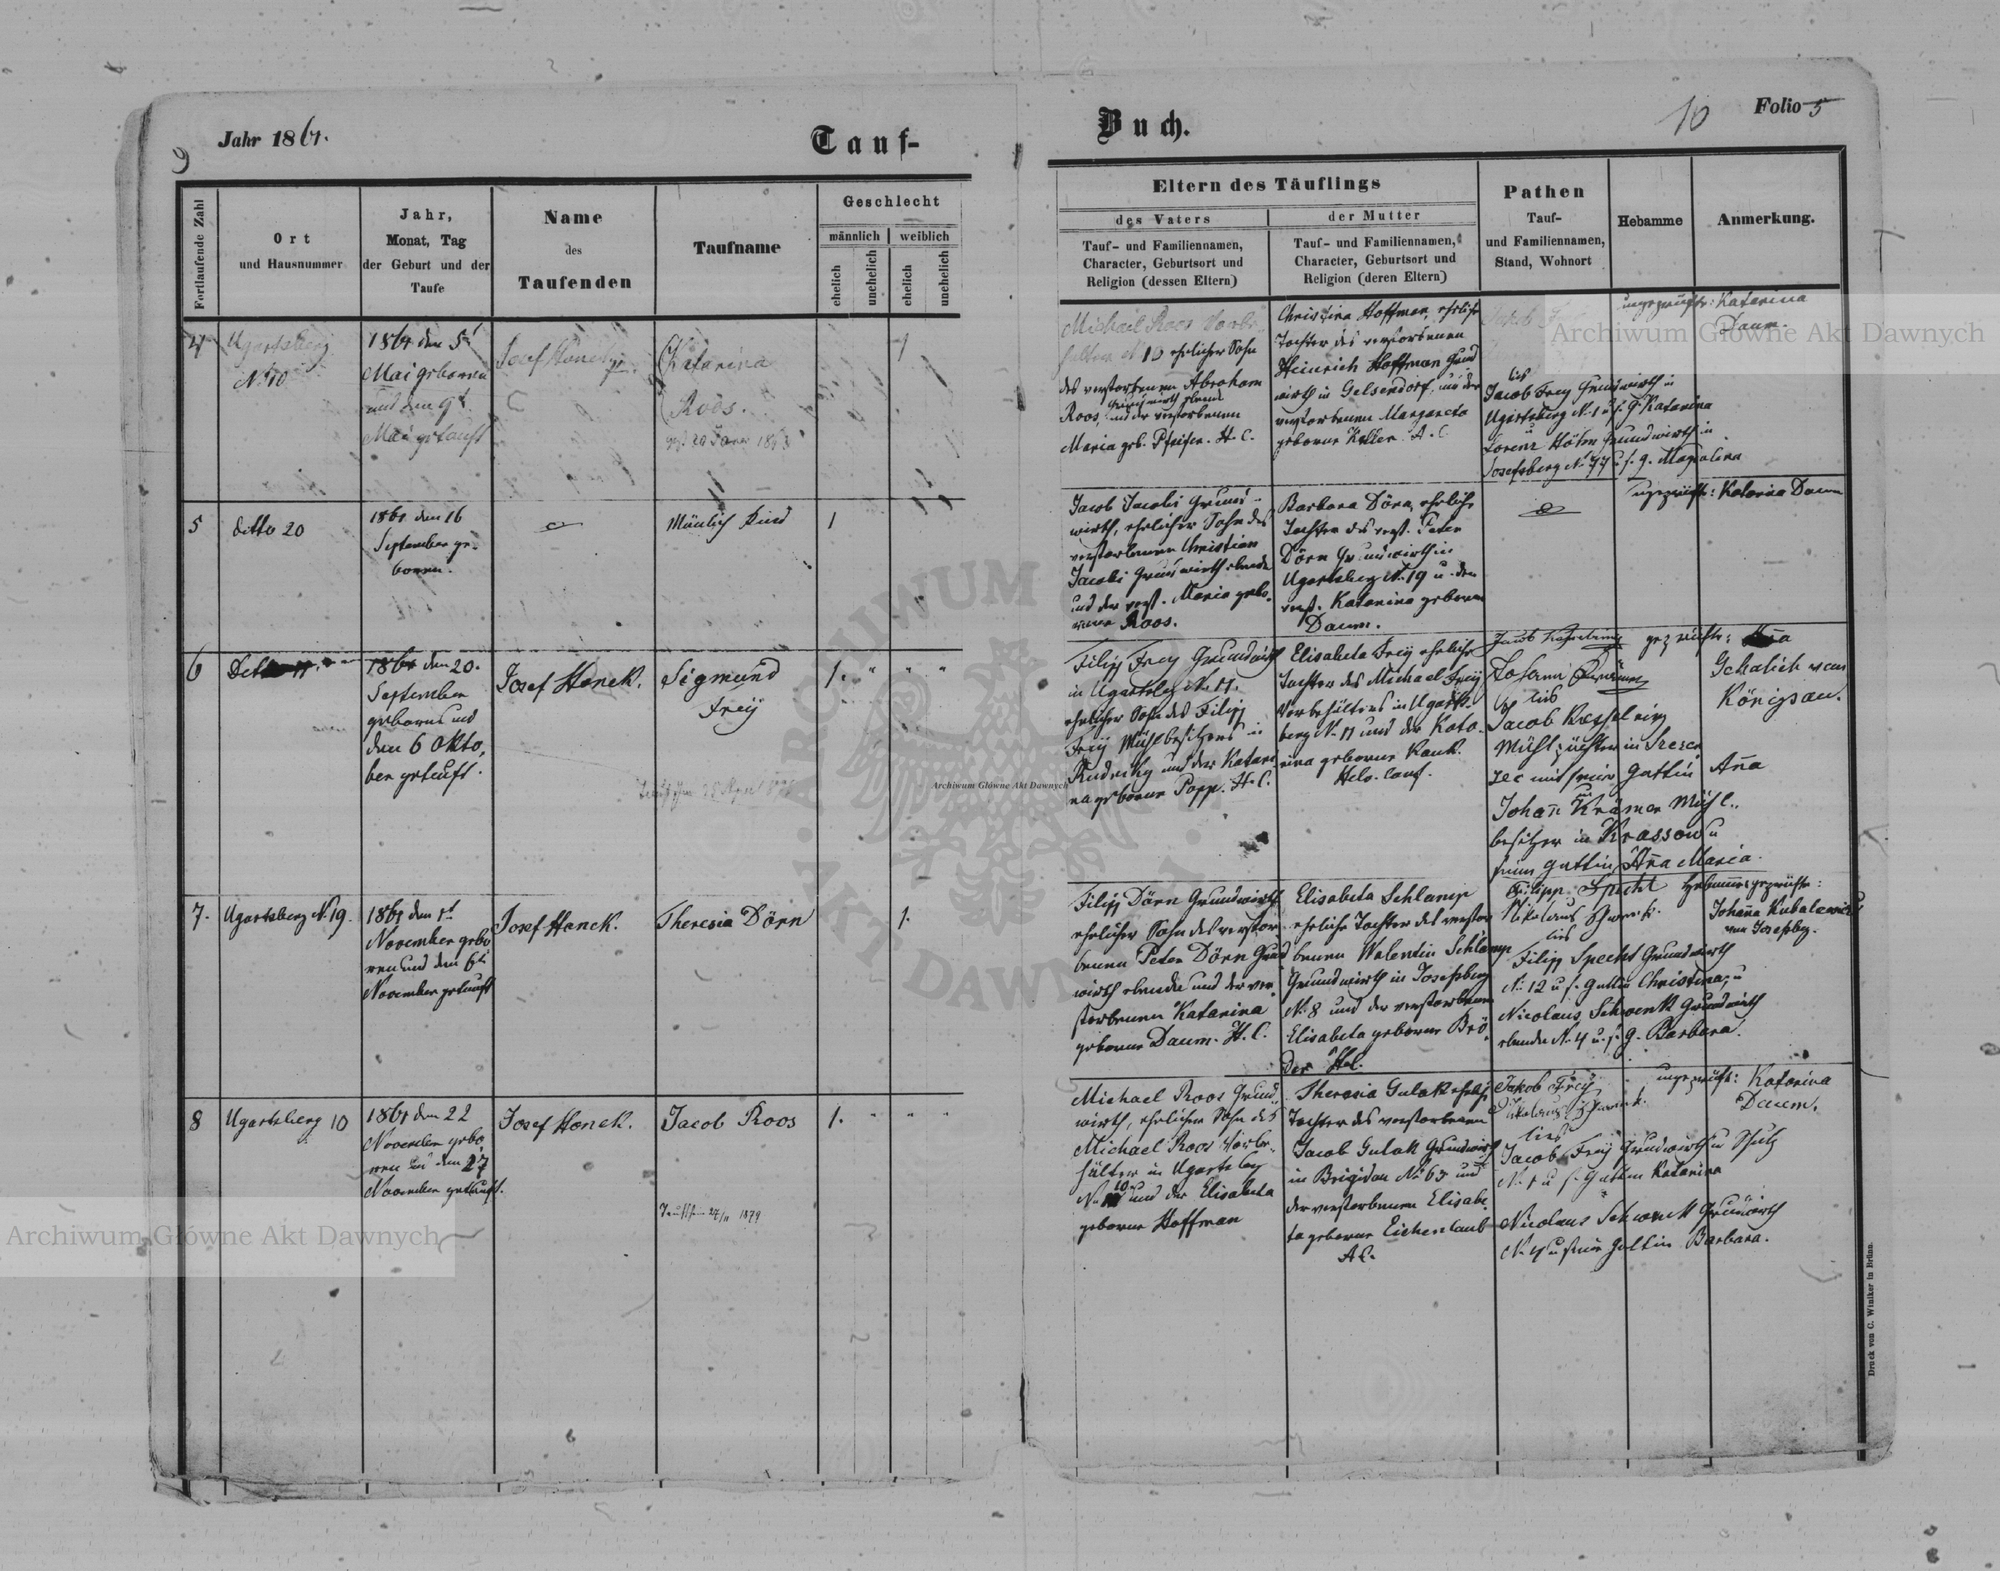 9
Jahr 1861.
Tauf-
Buch.
10
Folio 5
Fortlaufende Zahl
Ort
und Hausnummer
Jahr,
Monat, Tag
der Geburt und der
Taufe
Name
des
Taufenden
Taufname
Geschlecht
männlich
weiblich
ehelich
unehelich
ehelich
unehelich
Eltern des Täuflings
des Vaters
der Mutter
Tauf- und Familiennamen,
Character, Geburtsort und
Religion (dessen Eltern)
Tauf- und Familiennamen,
Character, Geburtsort und
Religion (deren Eltern)
Pathen
Tauf-
und Familiennamen,
Stand, Wohnort
Hebamme
Anmerkung.
4
Ugartsberg
N. 10
1861 den 5t
Mai geboren
und den 9t
Mai getauft
Josef Honek
Katarina
Roos.
1
Michail Roos
N. 10 ehrlicher Sohn
des verstorbenen Abraham
Roos, Grundwirth
und der verstorbenen
Maria geb. Pfeifer. H. C.
Christina Hoffman, ehrliche
Tochter des verstorbenen
Heinrich Hoffman Grund
wirth in Gelsendorf, und der
verstorbenen Margareta
geborne Keller A. C.
Jacob Frey Grundwirth in
Ugartsberg N. 1 u. s. G. Katarina
u
Lorenz Höhn Grundwirth in
Josefsberg N. 77 u. s. g. Magdalina
ungeprüfte: Katarina
Daum.
5
ditto 20
1861 den 16
September ge-
boren.
Mänlich Kind
1
Jacob Jacobi Grund-
wirth, ehrlicher Sohn des
verstorbenen Christian
Jacobi Grundwirth
und der verst. Maria gebo-
rne Roos.
Barbara Dörn, ehrliche
Tochter des verst. Peter
Dörn Grundwirth in
Ugartsberg N. 19 u. der
verst. Katarina geborne
Daum.
ungeprüfte: Katarina Daum
6
Ditto 11.
1861 den 20.
September
geboren und
den 6 Okto-
ber getauft.
Josef Honek.
Sigmund
Freÿ
1. " " "
Filipp Frey Grundwirth
in Ugartsberg N. 11.
ehrlicher Sohn des Filipp
Freÿ Mühlbesitzers in
Rudniky und der Katari-
na geborne Popp. H. C.
Elisabeta Freÿ ehrliche
Tochter des Michael Freÿ
Vorbehälters in Ugarts-
berg N. 11 und der Kata-
rina geborne Kauk.
Helv. Conf.
Jacob Kesselring
Johann Krämer
lies
Jacob Kesselring
Mühlpächter in Szczer
zec mit seiner Gattin Anna
Johann Krämer Mühl-
besitzer in Krassow u
seine Gattin Anna Maria.
geprüfte: Anna
Schalich von
Königsau.
7.
Ugartsberg N. 19.
1861 den 1t
November gebo
ren und den 6t
November getauft
Josef Honek.
Theresia Dörn
1.
Filipp Dörn Grundwirth
ehrlicher Sohn des verstor-
benen Peter Dörn Grund
wirth und der ver-
storbenen Katarina
geborne Daum. H. C.
Elisabeta Schlamp
ehrliche Tochter des verstor
benen Walentin Schlamp
Grundwirth in Josefsberg
N. 8 und der verstorbenen
Elisabeta geborne Brö-
der Hel.
Philipp Specht
Nikolaus Schwenk.
lies
Filipp Specht Grundwirth
N. 12 u. s. Gattin Christina, u
Nicolaus Schwenk Grundwirth
N. 4 u. s. g. Barbara.
Hebamme geprüfte:
Johanna Kubalewicz
von Josefsbg.
8
Ugartsberg 10
1861 den 22
November gebo
ren und den 27
November getauft.
Josef Honek.
Jacob Roos
Taufschein 24/11 1879
1. " " "
Michael Roos Grund-
wirth, ehrlicher Sohn des
Michael Roos Vorbe-
hälter in Ugartsberg
N. 10 und der Elisabeta
geborne Hoffman
Theresia Gulak ehrliche
Tochter des verstorbenen
Jacob Gulak Grundwirth
in Brigidau N. 63 und
der verstorbenen Elisabe-
ta geborne Eichenlaub
A C.
Jakob Freÿ
Nikolaus Schwenk.
lies
Jacob Freÿ Grundwirth u Schulz
N. 1 u. s. Gattin Katarina
Nicolaus Schwenk Grundwirth
N. 4 u seine Gattin Barbara.
ungeprüft: Katarina
Daum.
Druck von C. Winiker in Brünn.
Archiwum Główne Akt Dawnych
Archiwum Główne Akt Dawnych
Archiwum Główne Akt Dawnych